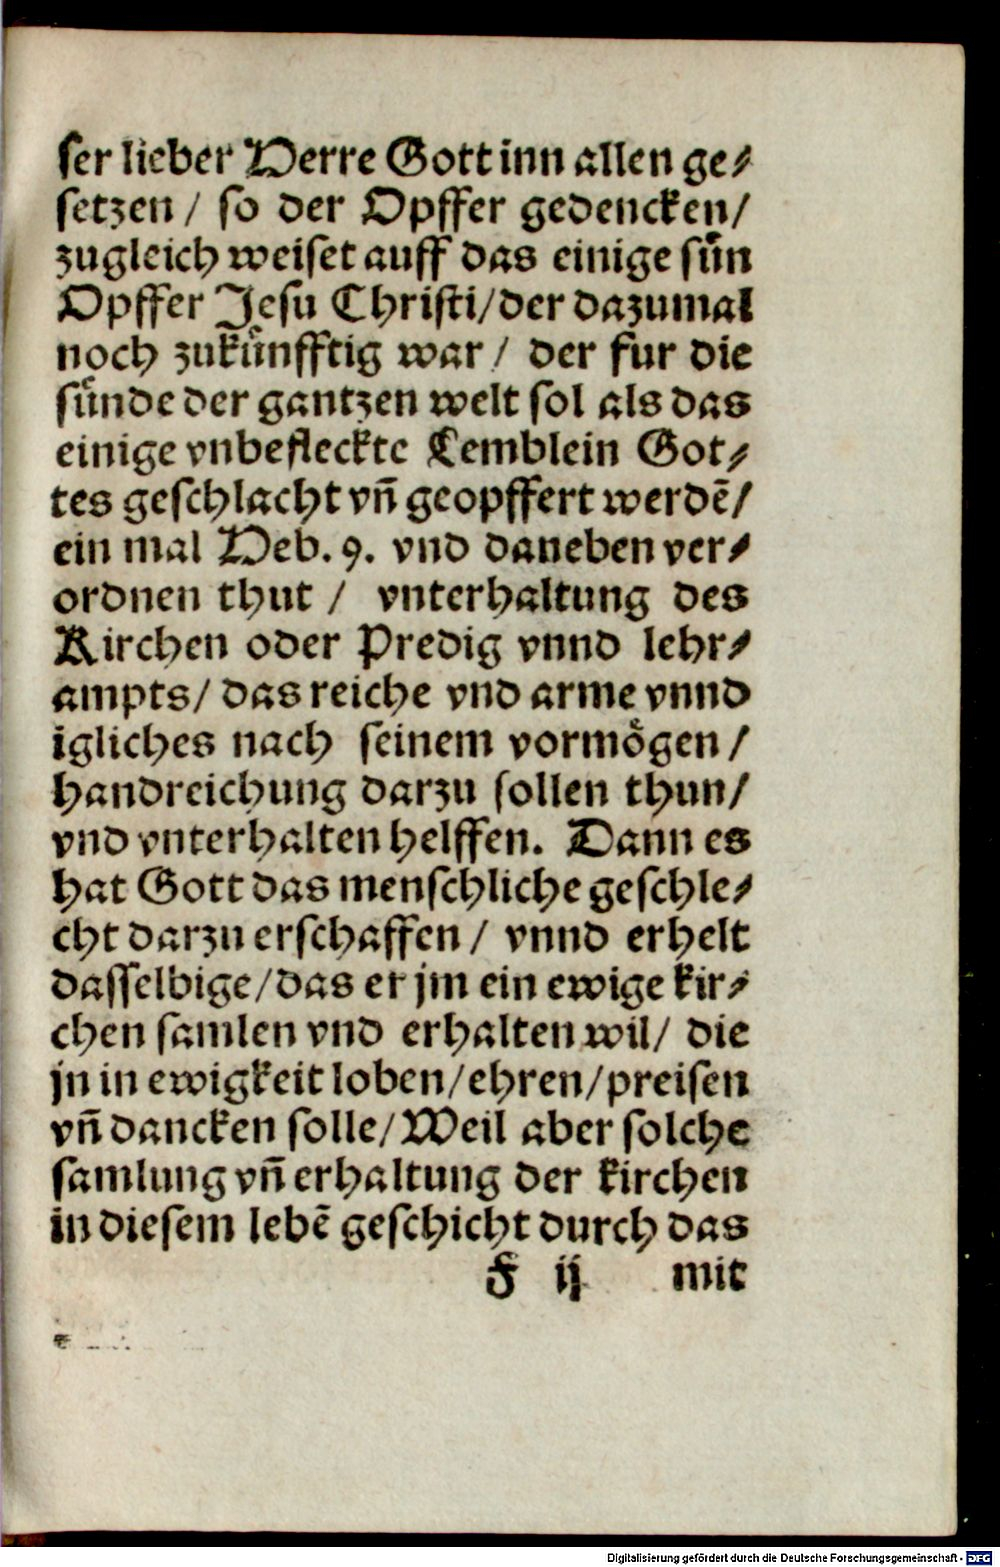 ser lieber Herre Gott inn allen ge⸗
setzen / so der Opffer gedencken/
zugleich weiset auff das einige sün
Opffer Jesu Christi/der dazumal
noch zukünfftig war / der fur die
sünde der gantzen welt sol als das
einige vnbefleckte Lemblein Got⸗
tes geschlacht vñ geopffert werdẽ/
ein mal Heb. 9. vnd daneben ver⸗
ordnen thut / vnterhaltung des
Kirchen oder Predig vnnd lehr⸗
ampts/ das reiche vnd arme vnnd
igliches nach seinem vormögen /
handreichung darzu sollen thun/
vnd vnterhalten helffen. Dann es
hat Gott das menschliche geschle⸗
cht darzu erschaffen / vnnd erhelt
dasselbige/das er jm ein ewige kir⸗
chen samlen vnd erhalten wil/ die
jn in ewigkeit loben/ehren/preisen
vñ dancken solle/Weil aber solche
samlung vñ erhaltung der kirchen
in diesem lebẽ geschicht durch das
F ij mit
Digitalisierung gefördert durch die Deutsche Forschungsgemeinschaft - DFG